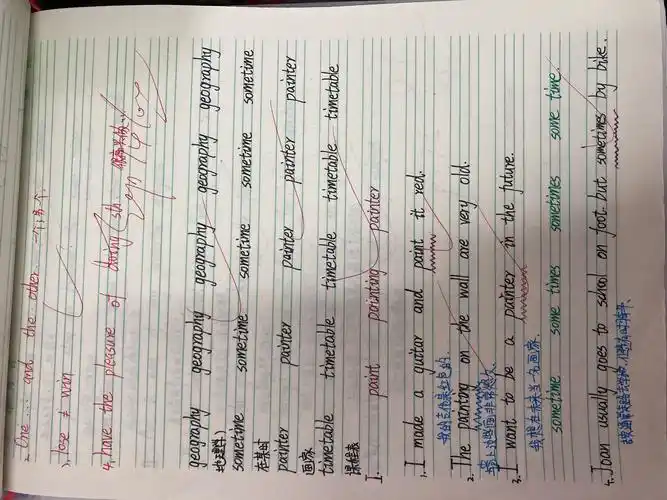 2. One ... and the other ... 一个，另一个.
3. lose ≠ win
4. have the pleasure of doing sth
geography geography geography geography geography
地理(学)
sometime sometime sometime sometime sometime
在某时
painter painter painter painter painter
画家
timetable timetable timetable timetable timetable
课程表
I. paint painting painter
1. I made a guitar and paint it red.
2. The painting on the wall are very old.
墙上
3. I want to be a painter in the future.
我想在未来当一名画家.
sometime some times sometimes some time.
4. Joan usually goes to school on foot but sometimes by bike.